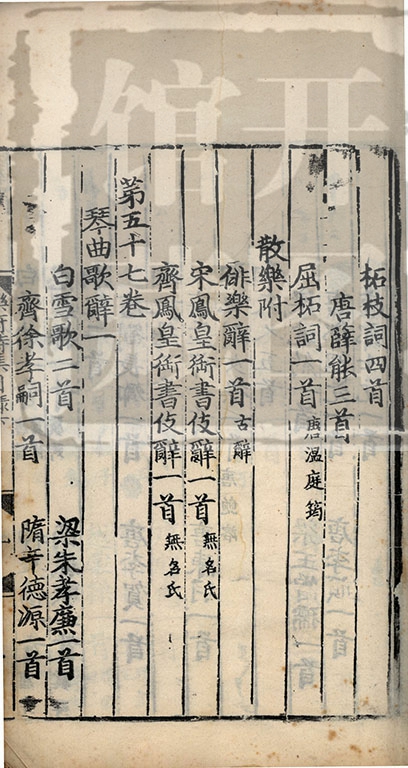 柘枝詞四首
唐薛能三首
屈柘詞一首 唐溫庭筠
散樂附
俳樂辭一首 古辭
宋鳳皇銜書伎辭一首 無名氏
齊鳳皇銜書伎辭一首 無名氏
第五十七卷
琴曲歌辭一
白雪歌二首 梁朱孝廉一首
齊徐孝嗣一首 隋辛德源一首